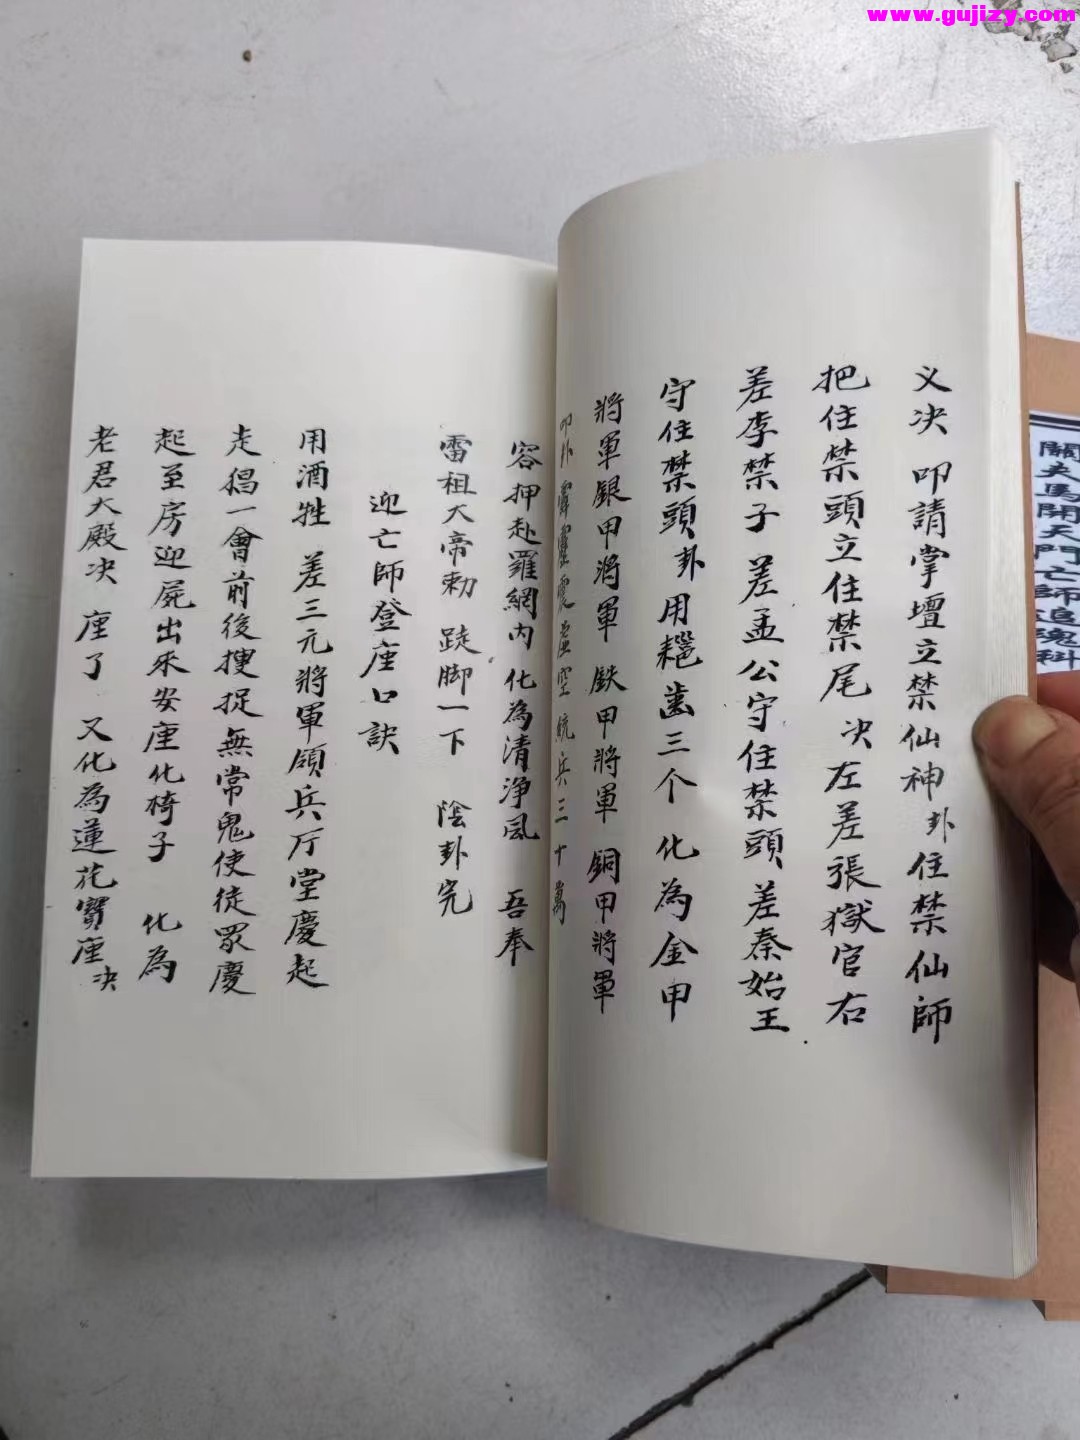 www.gujizy.com
关夫馬開天門亡師追魂科
义决 叩請掌壇立禁仙神 卦 住禁仙師
把住禁頭立住禁尾 决 左差張獄官右
差李禁子 差孟公守住禁頭差秦始王
守住禁頭 卦 用耙齒三个 化為金甲
將軍銀甲將軍 鉄甲將軍 銅甲將軍
叩卦 震虛空統兵三十萬
容押赴羅網内 化為清淨風 吾奉
雷祖大帝勅 跶脚一下 陰卦完
迎亡師登座口訣
用酒牲 差三元將軍領兵厅堂慶起
走猖一會前後搜捉無常鬼使徒眾慶
起至房迎屍出來安座化椅子 化為
老君大殿决 座了 又化為蓮花寶座决